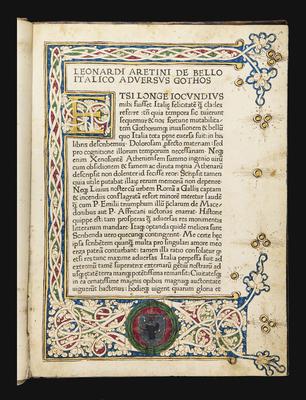 LEONARDI ARETINI DE BELLO
ITALICO ADVERSVS GOTHOS
TSI LONGE IOCVNDIVS
mihi fuisset Italię felicitatē q̄ clades
referre: tn̄ quia tempora sic tulerunt
sequemur & nos fortunę mutabilita
tem Gothorumq; inuasionem & bellū
quo Italia tota pęne euersa fuit: in his
libris describemus. Dolorosam profecto materiam: sed
pro cognitione illorum temporum necessariam. Neq;
enim Xenofontē Atheniensem summo ingenio uirū
cum obsidionem & famem ac diruta męnia Athenarū
descripsit non dolenter id fecisse reor. Scripsit tamen
quia utile putabat illarū rerum memoriā non deperire
Neq; Liuius noster cū urbem Romā a Gallis captam
& incendio conflagratā refert minorē meretur laudē
q̄ cum P. Emilii triumphum illū pręclarum de Mace
donibus aut P. Affricani uictorias enarrat. Historię
quippe est: tam prosperas q̄ aduersas res monimentis
litterarum mandare. Itaq; optanda quidē meliora sunt
Scribenda uero quęcunq; contingerint. Me certe hęc
ipsa scribētem quanq̄ multa pro singulari amore meo
erga patriā conturbant: tamen illa ratio consolatur q
etsi res tunc maxime aduersas Italia perpessa fuit: ad
extremū tamē superatrix externarū gentiū
usq; ętatē terra mariq; potētissima remansit: Ciuitatesq;
in ea ornatissimę magnis opibus magnaq; auctoritate
uiguerūt hactenus: hodieq; uigent quarum gloria et